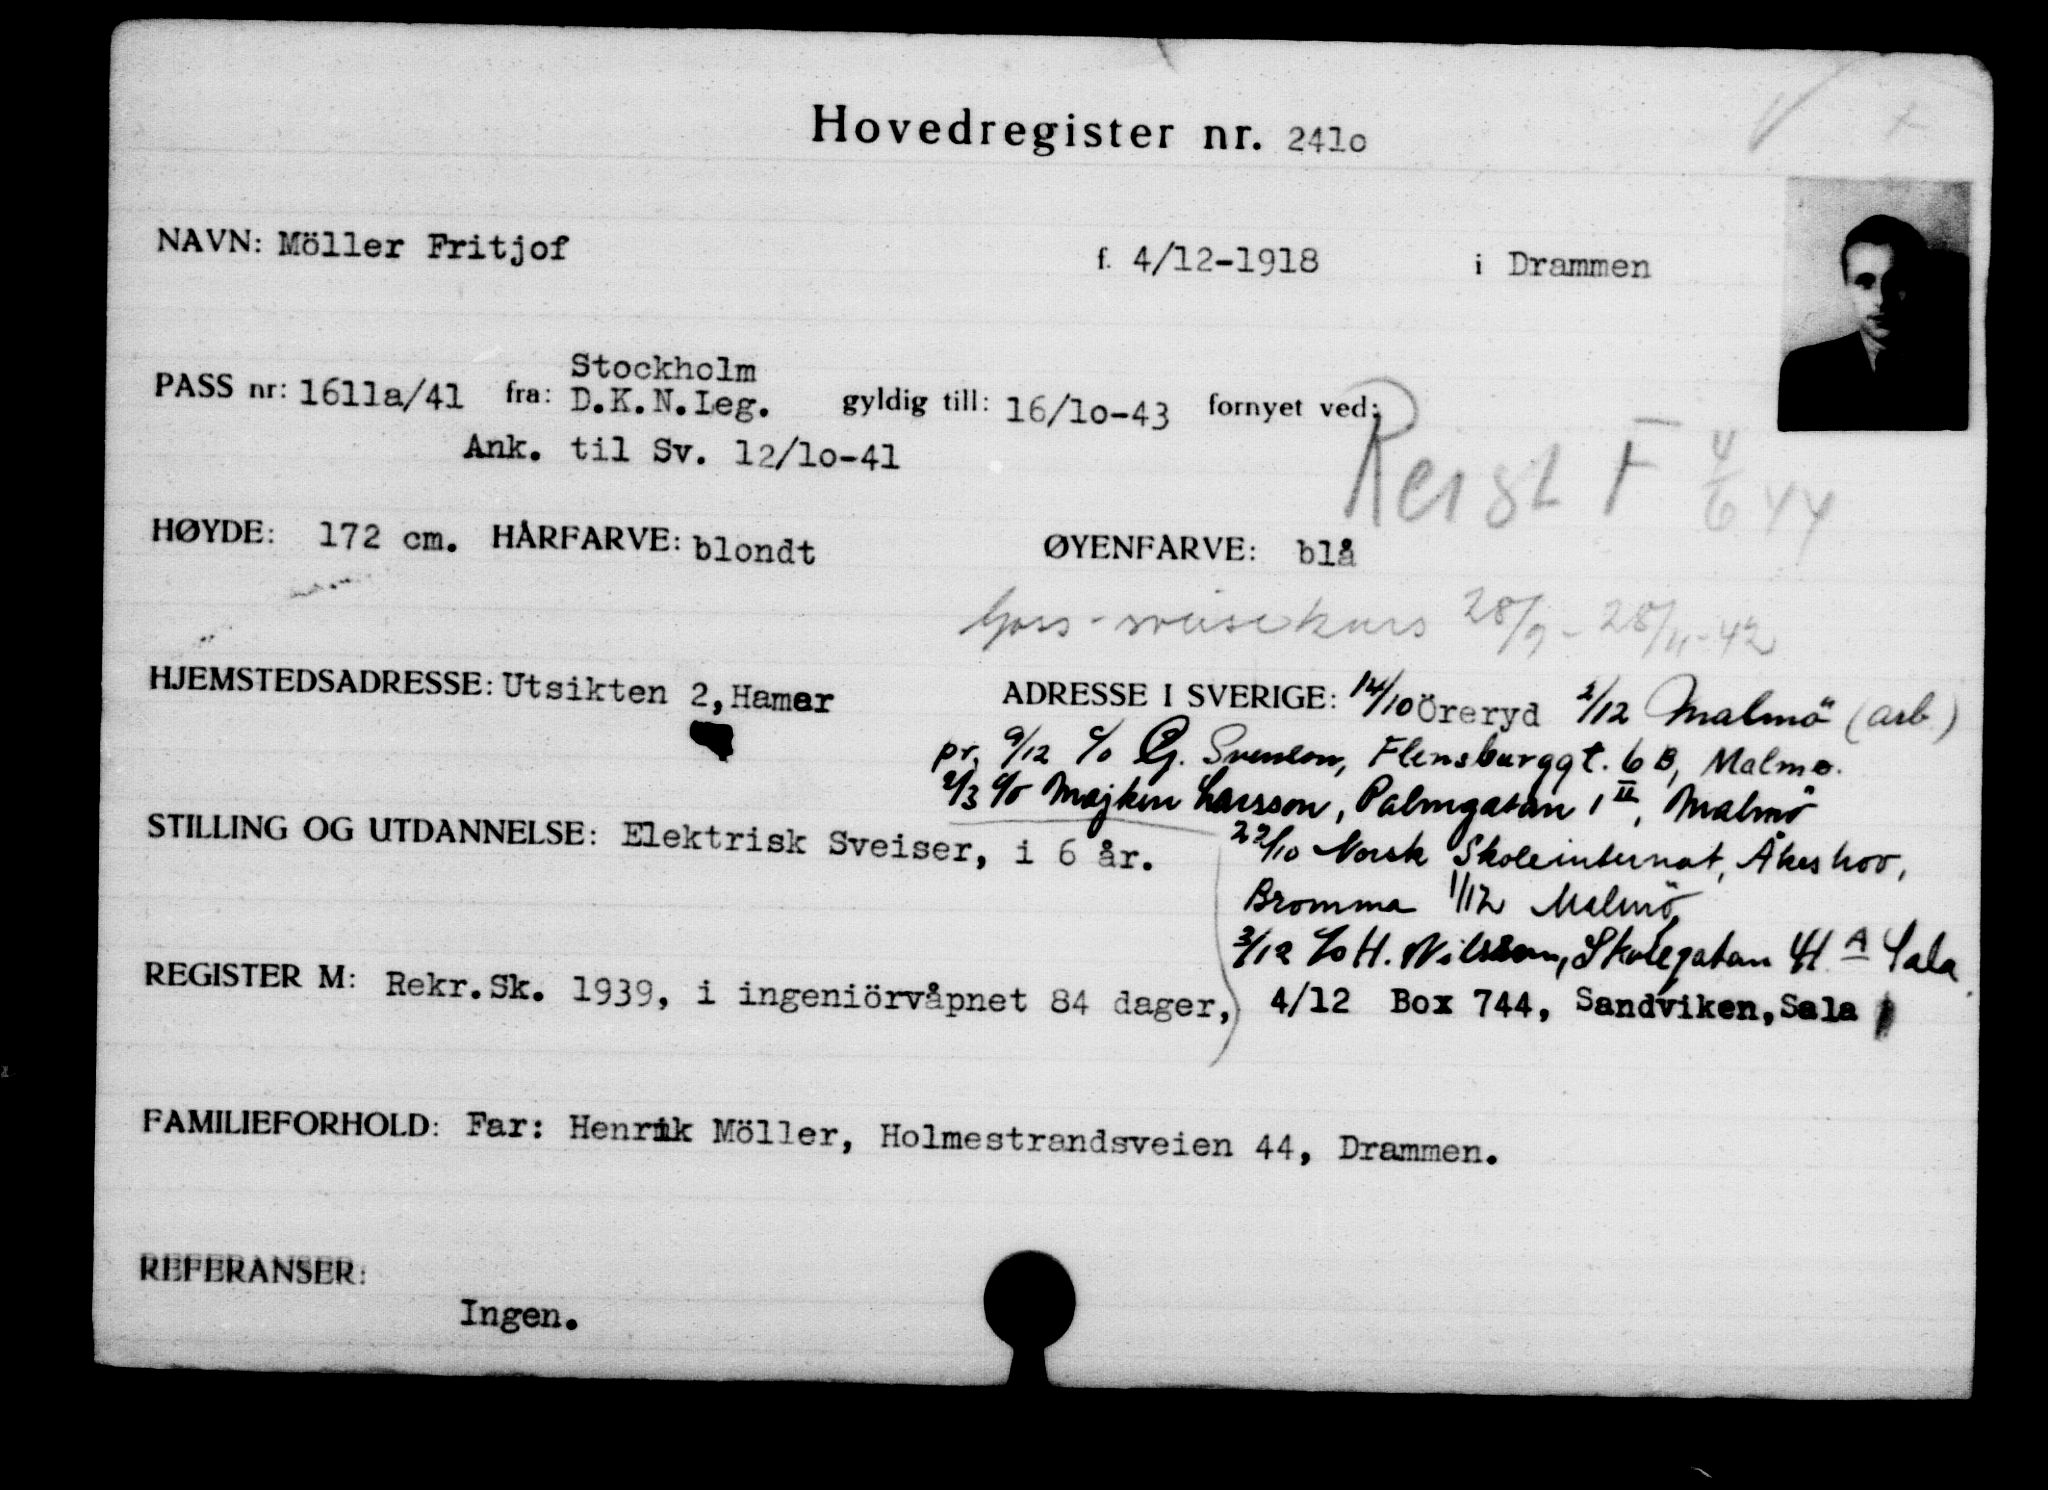 Hovedregister nr. 241o
NAVN: Möller Fritjof f. 4/12-1918 i Drammen
Stockholm
PASS nr: 1611a/41 fra: D.K.N.Leg. gyldig till: 16/1o-43 fornyet ved:
Ank. til Sv. 12/1o-41
Reist F 4/6 44
HØYDE: 172 cm. HÅRFARVE: blondt ØYENFARVE: blå
sveisekurs 28/9 - 28/11-42
HJEMSTEDSADRESSE: Utsikten 2, Hamar ADRESSE I SVERIGE: 14/10 Öreryd 2/12 Malmö (arb.)
pr. 9/12 c/o G. Svenson, Flensburggt. 6 B, Malmø.
2/3 c/o Majken Larsson, Palmgatan 1 II, Malmö
STILLING OG UTDANNELSE: Elektrisk Sveiser, i 6 år.
22/10 Norsk Skoleinternat, Åkeshov,
Bromma 1/12 Malmö,
3/12 c/o H. Nilsson, Skolegatan A Sala
REGISTER M: Rekr.Sk. 1939, i ingeniörvåpnet 84 dager, 4/12 Box 744, Sandviken, Sala
FAMILIEFORHOLD: Far: Henrik Möller, Holmestrandsveien 44, Drammen.
REFERANSER:
Ingen.